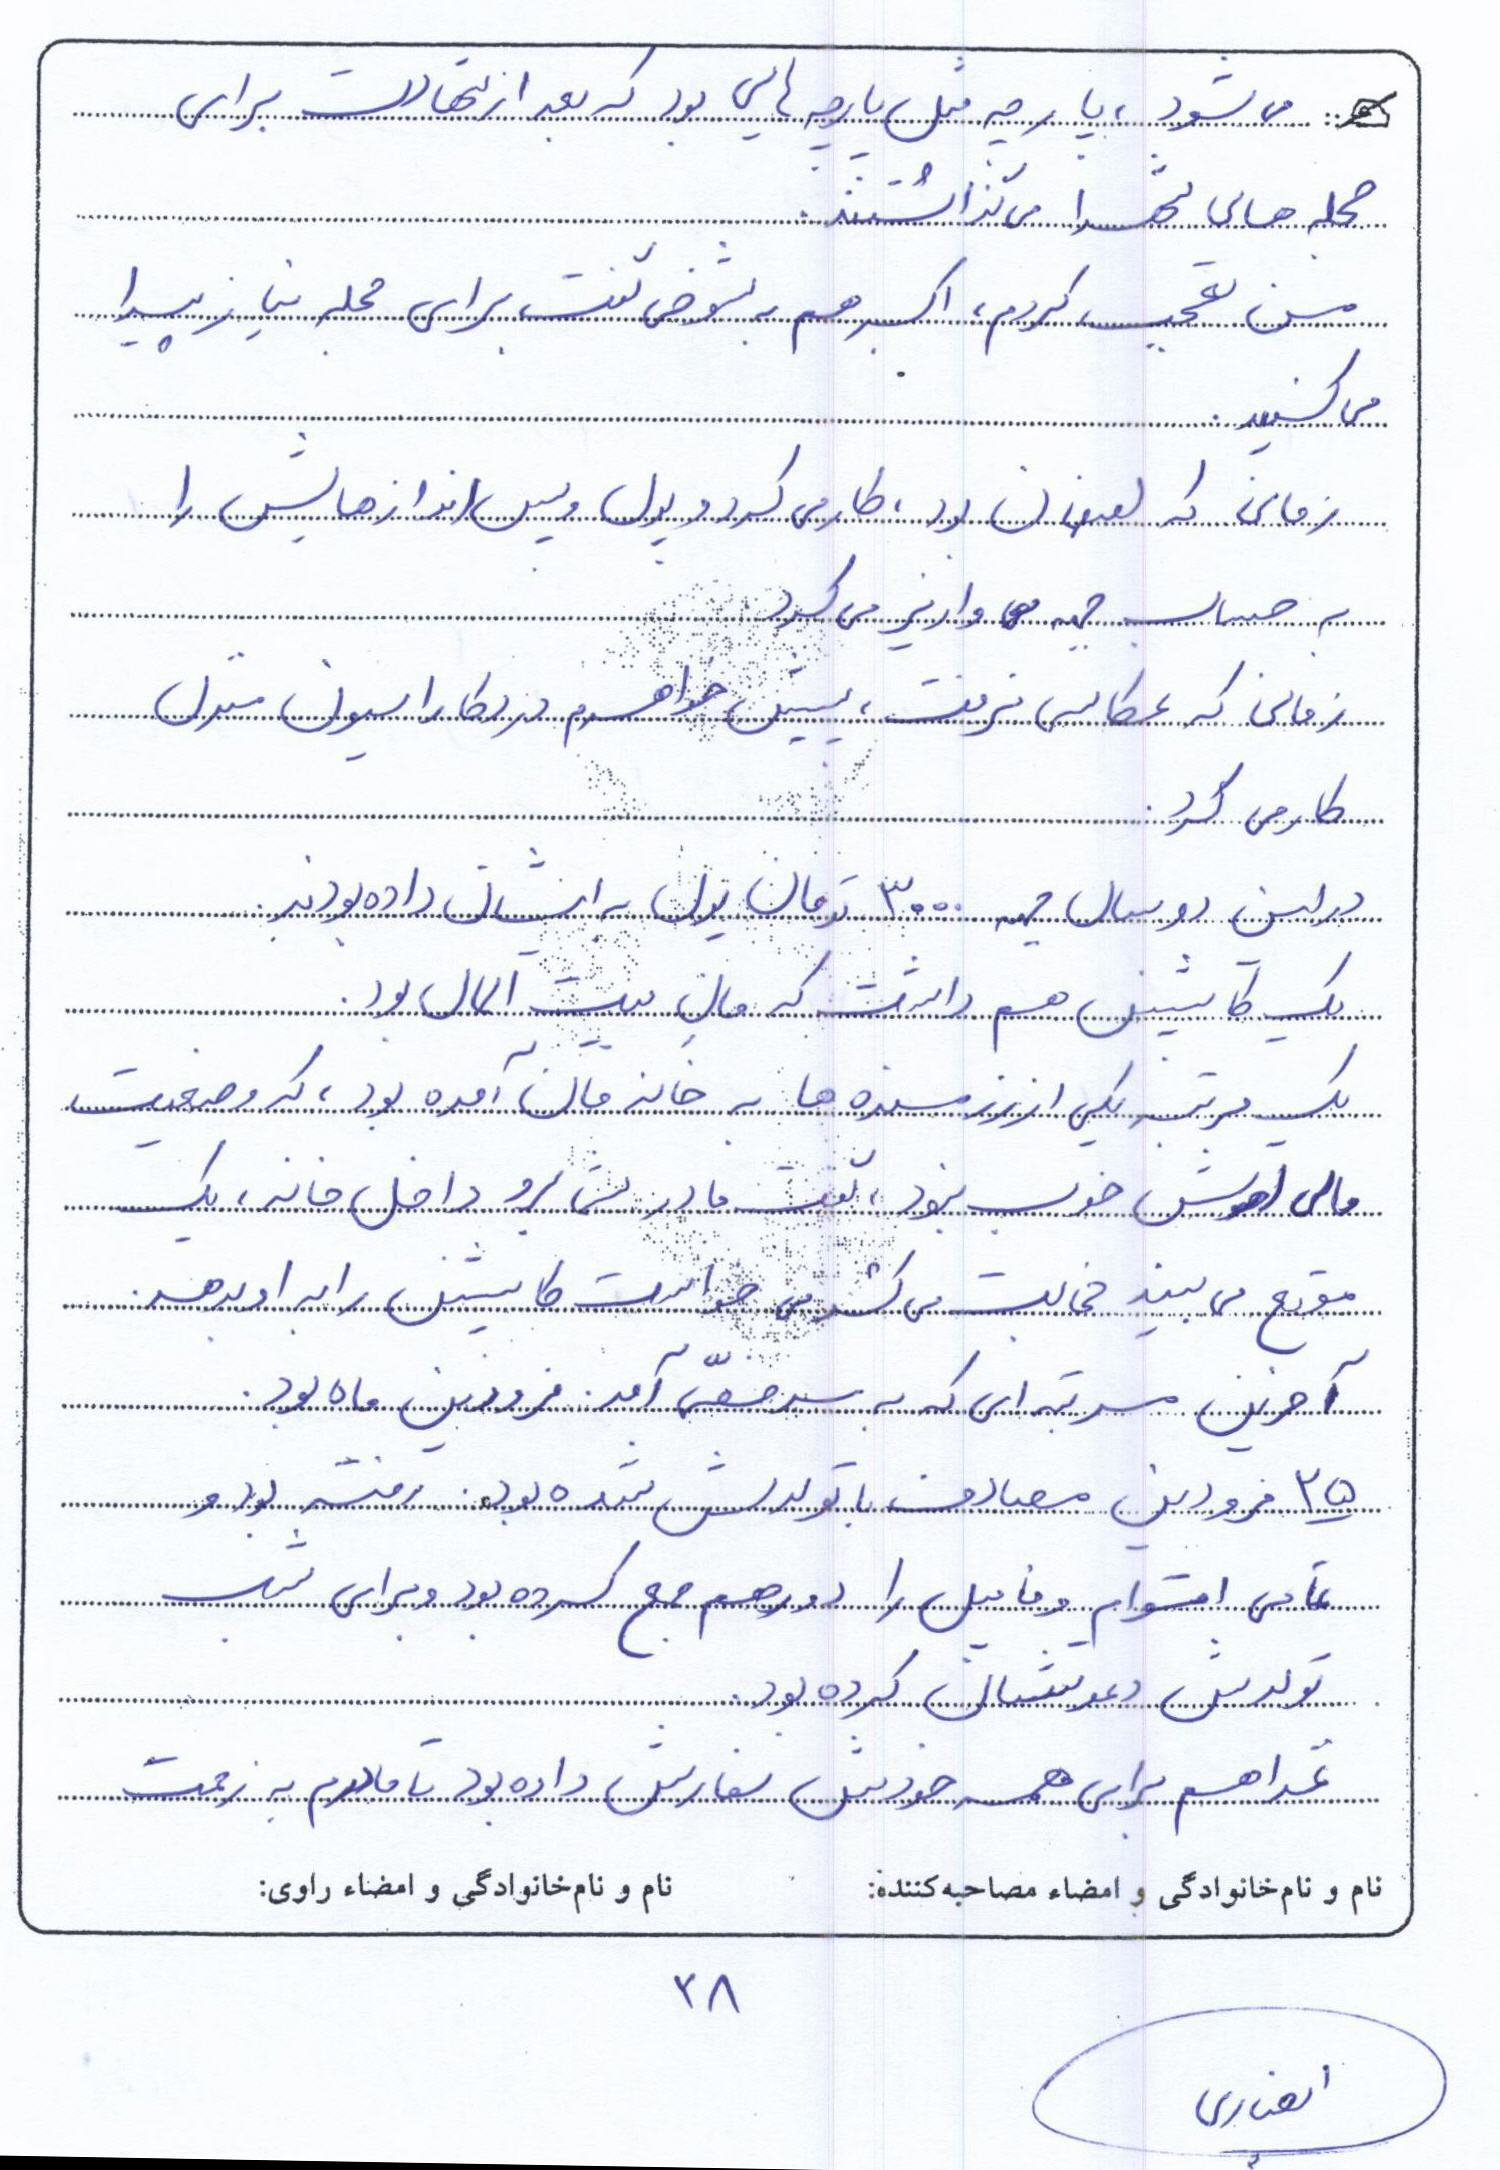 می شود، پارچه مثل پارچه هایی بود که بعد از شهادت برای
حجله های شهدا می گذاشتند.
من تعجب کردم، اکبر هم به شوخی گفت برای حجله نیاز پیدا
می کنید.
زمانی که اصفهان بود، کار می کرد و پول و پس اندازهایش را
به حساب جبهه واریز می کرد
زمانی که عکاسی نرفت، پیش خواهرم در دکاراسیون منزل
کار می کرد.
در این دو سال جبهه ۳۰۰۰ تومان پول به ایشان داده بودند.
یک کاپشن هم داشت که مال بیت المال بود.
یک مرتبه یکی از رزمنده ها به خانه مان آمده بود، که وضعیت
مالی اش خوب نبود، گفت مادر شما برو داخل خانه، یک
موقع می بیند خجالت می کشد می خواست کاپشن را به او بدهد.
آخرین مرتبه ای که به مرخصی آمد. فروردین ماه بود.
۲۵ فروردین مصادف با تولدش شده بود. رفته بود و
تمامی اقوام و فامیل را دور هم جمع کرده بود و برای شب
تولدش دعوتشان کرده بود.
غذا هم برای همه خودش سفارش داده بود تا مادرم به زحمت
نام و نام‌خانوادگی و امضاء مصاحبه‌کننده: نام و نام‌خانوادگی و امضاء راوی:
۲۸
انصاری